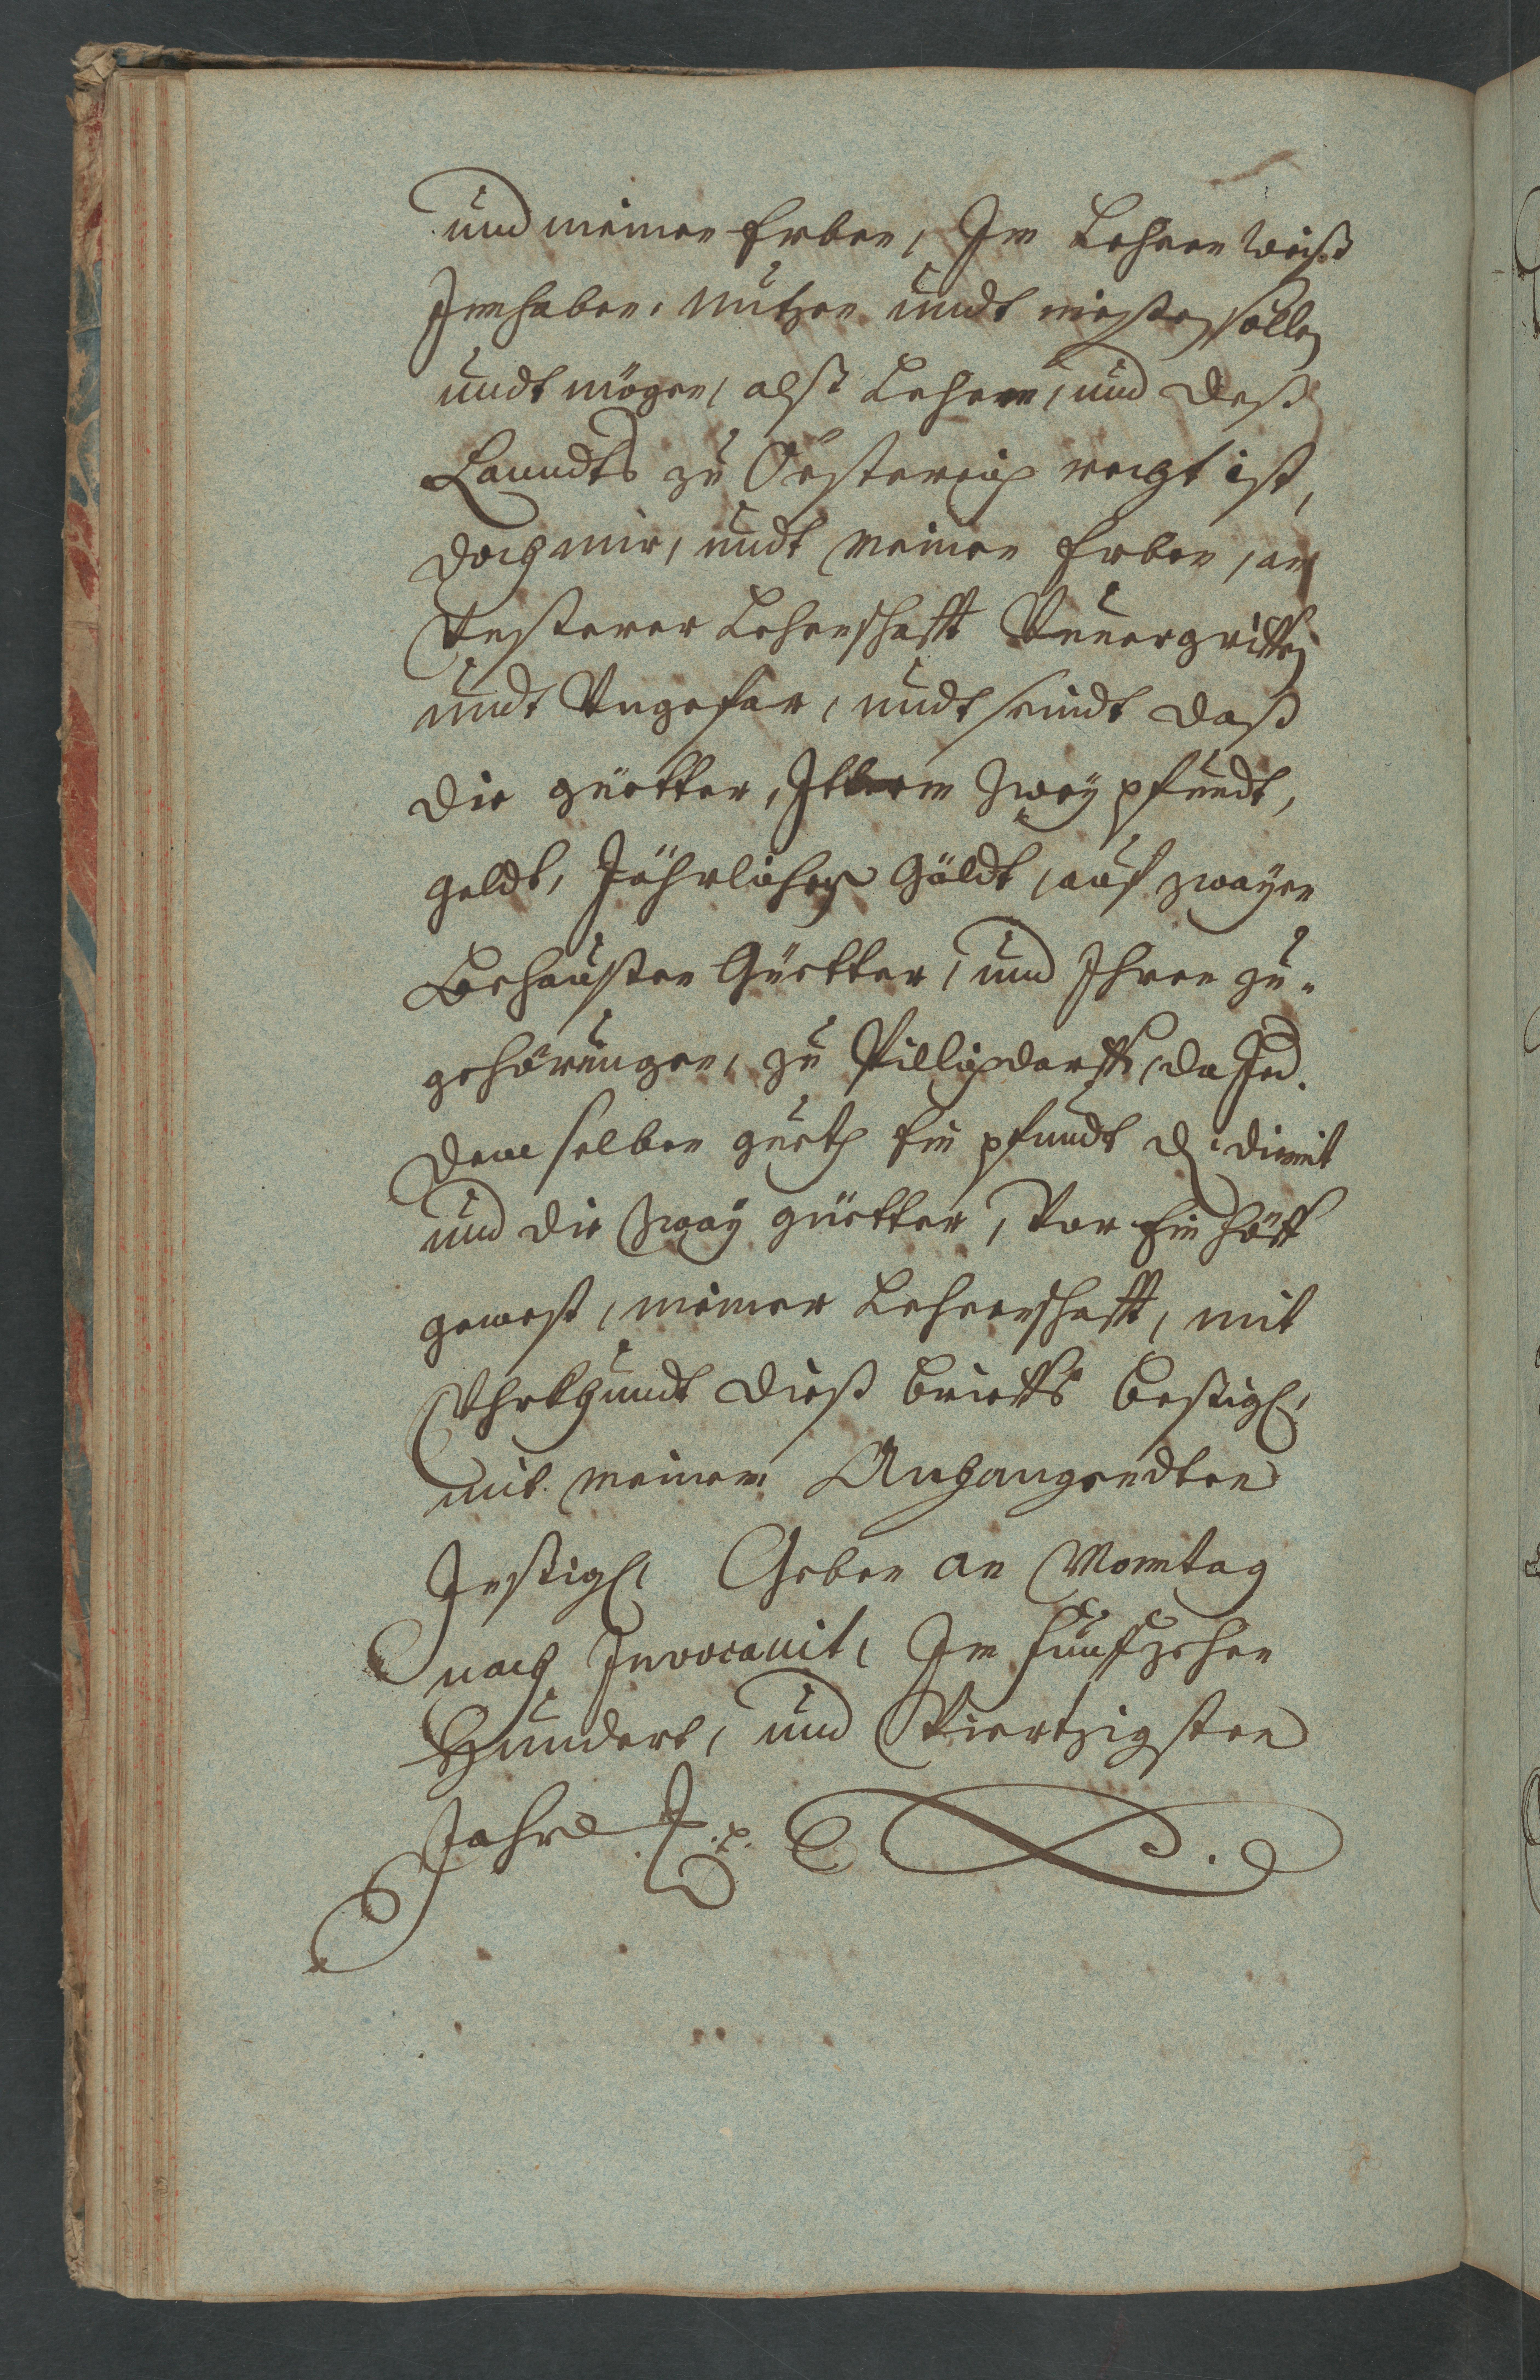 und meinen Erben, Im Lehen weiß
Innhaben, nutzen undt niessen sollen
undt mögen, alß Lehen, und deß
Lanndts zu Össterreich recht ist,
doch mir, undt meinen Erben, an
Vnsterer Lehenschafft Vnuergriffen
undt Vngefar, undt seindt daß
die güetter, Ittem zwey pfundt,
geldt, Jährlichen Güldt, auf zwayen
Behausten Güetter, und Ihren zu-
gehörungen, zu Pillichdorff, da Jed.
dem selben gueth Ein pfundt d. dient
und die zway güetter, Vor Ein Hoff
gewest, meiner Lehenschafft, mit
Vhrkhundt dieß brieffs Besiegl,
mit meinem Anhangendten
Insigl, Geben an Monntag
nach Invocauit, Im funfzehen
Hundert, und Viertzigsten
Jahr